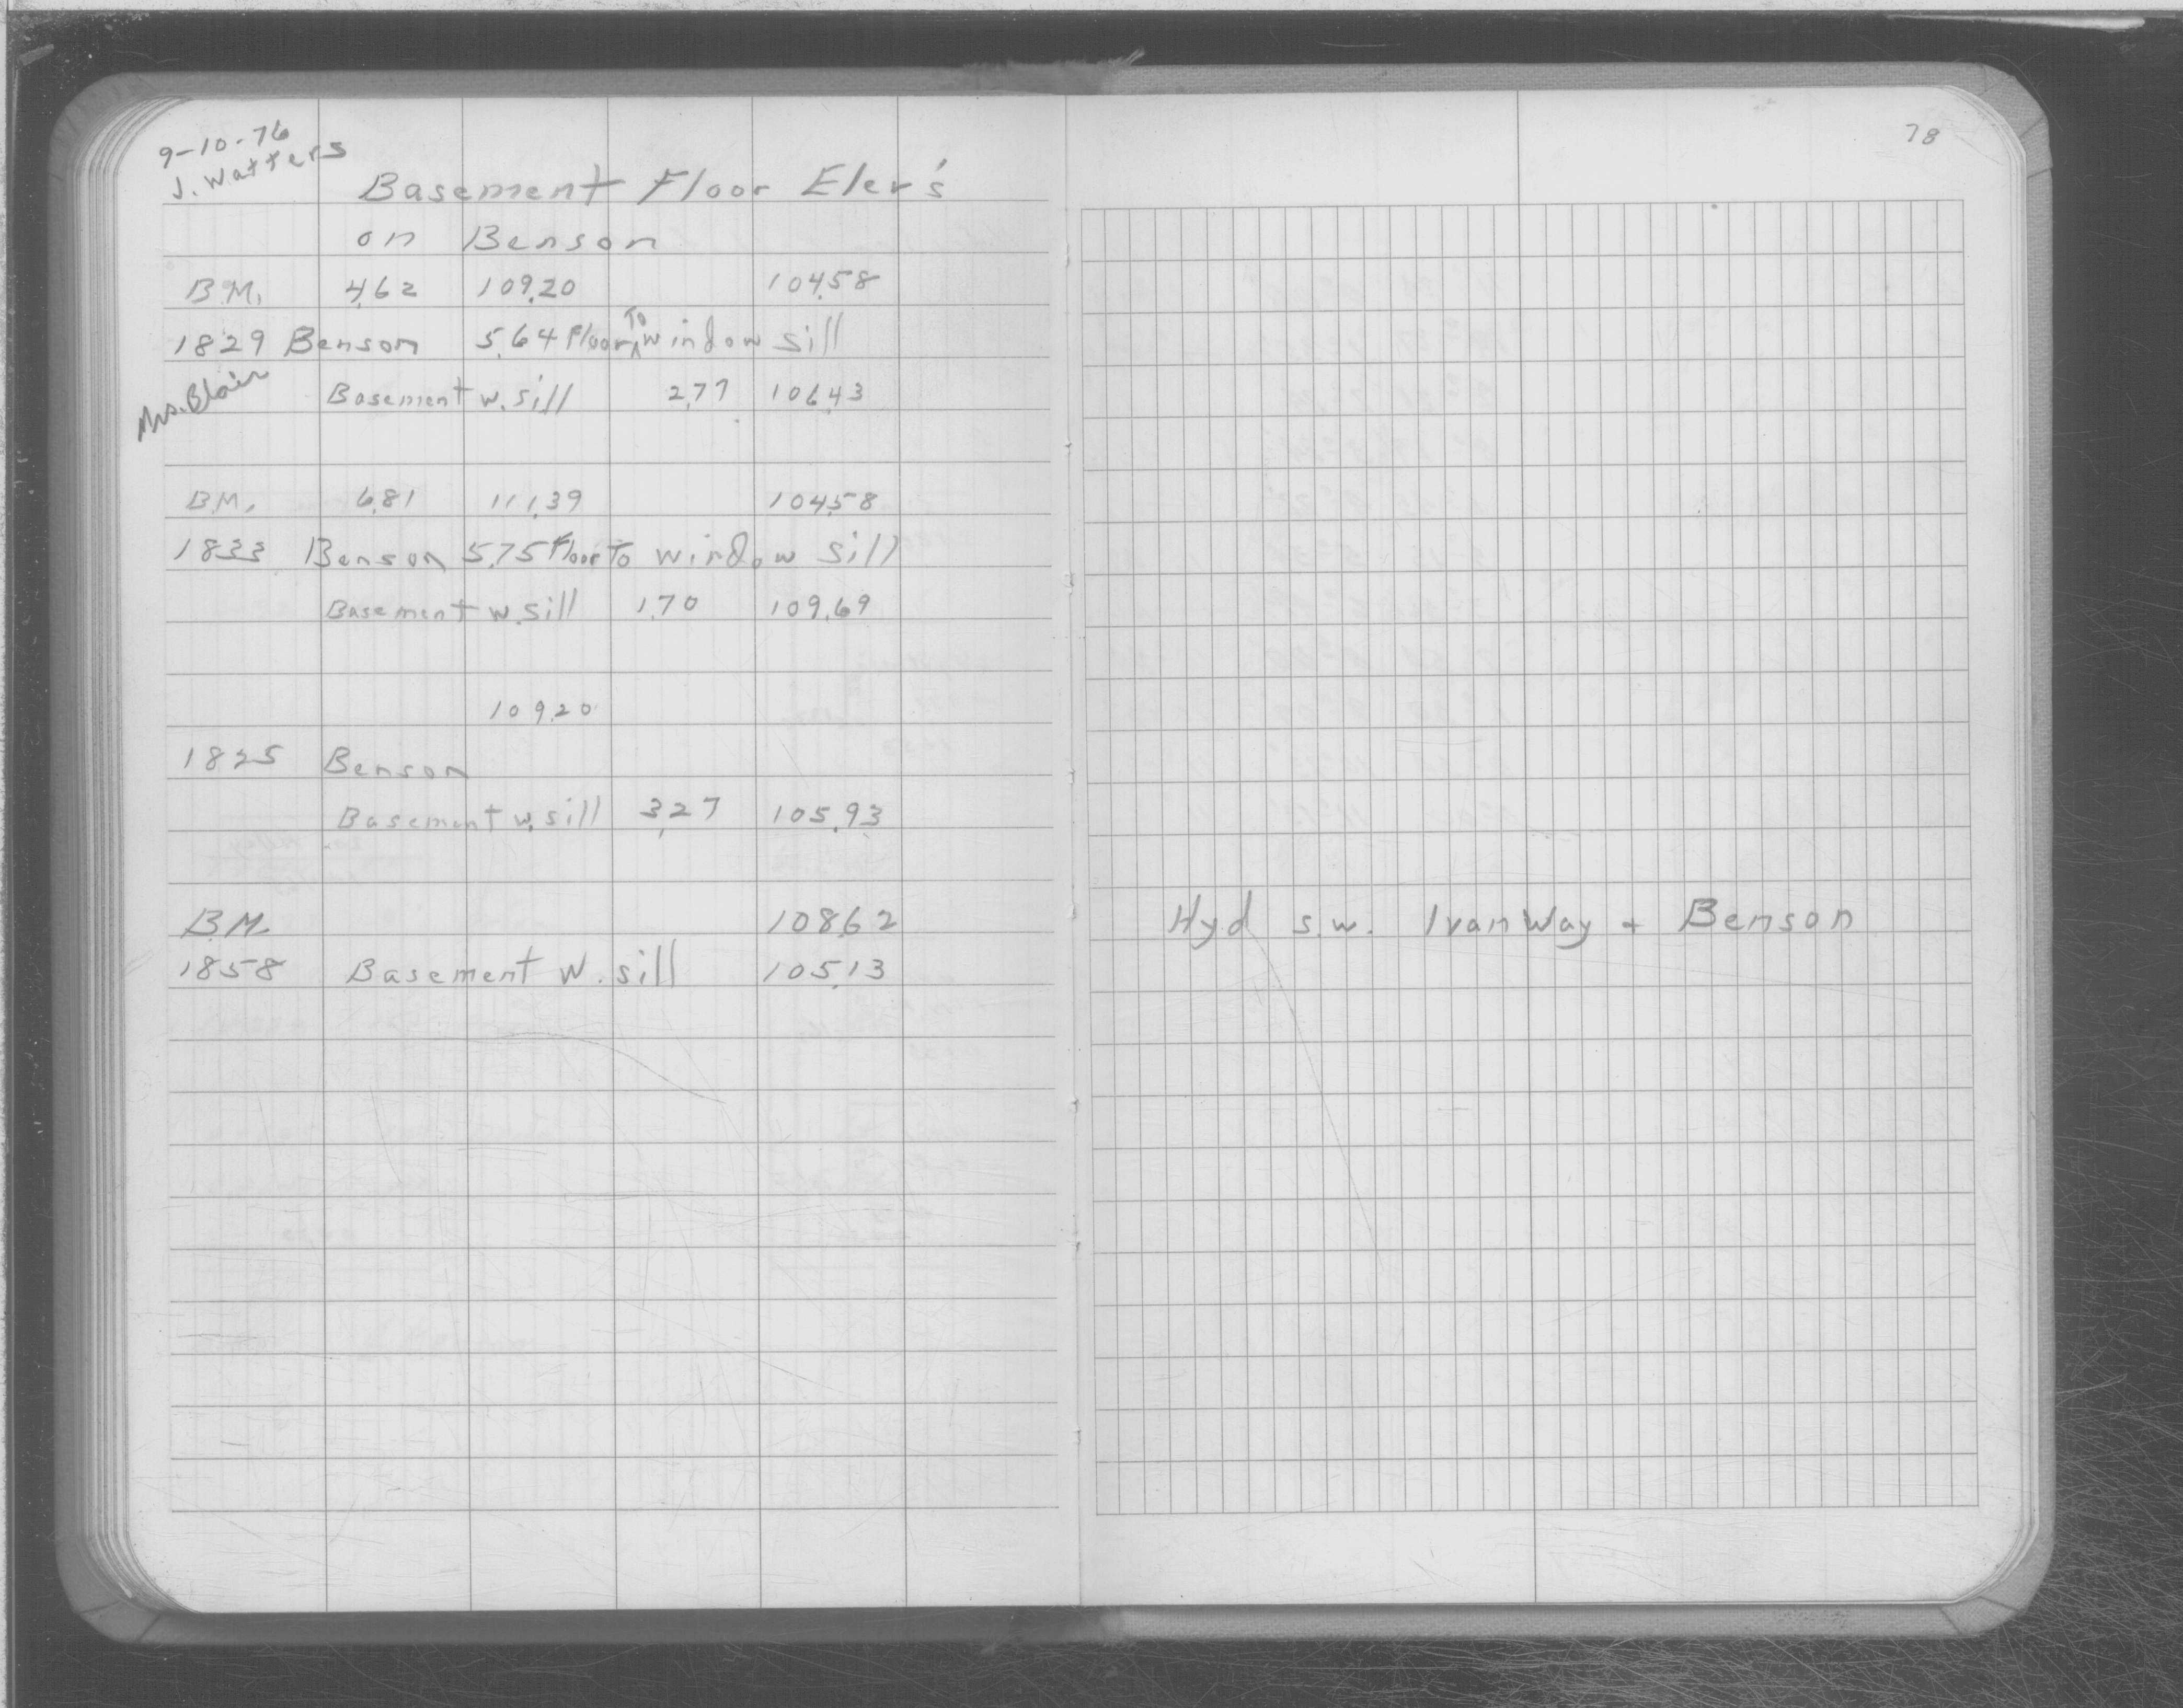 9-10-76
J. Watters
Basement Floor Elev's
on Benson
B.M. 4.62 109.20 104.58
1829 Benson 5.64 Floor To window sill
Mrs. Blair Basement w. sill 2.77 106.43
B.M. 6.81 111.39 104.58
1833 Benson 5.75 Floor To window sill
Basement w. sill 1.70 109.69
109.20
1825 Benson
Basement w. sill 3.27 105.93
B.M. 108.62
1858 Basement W. sill 105.13
78
Hyd s.w. Ivanway + Benson